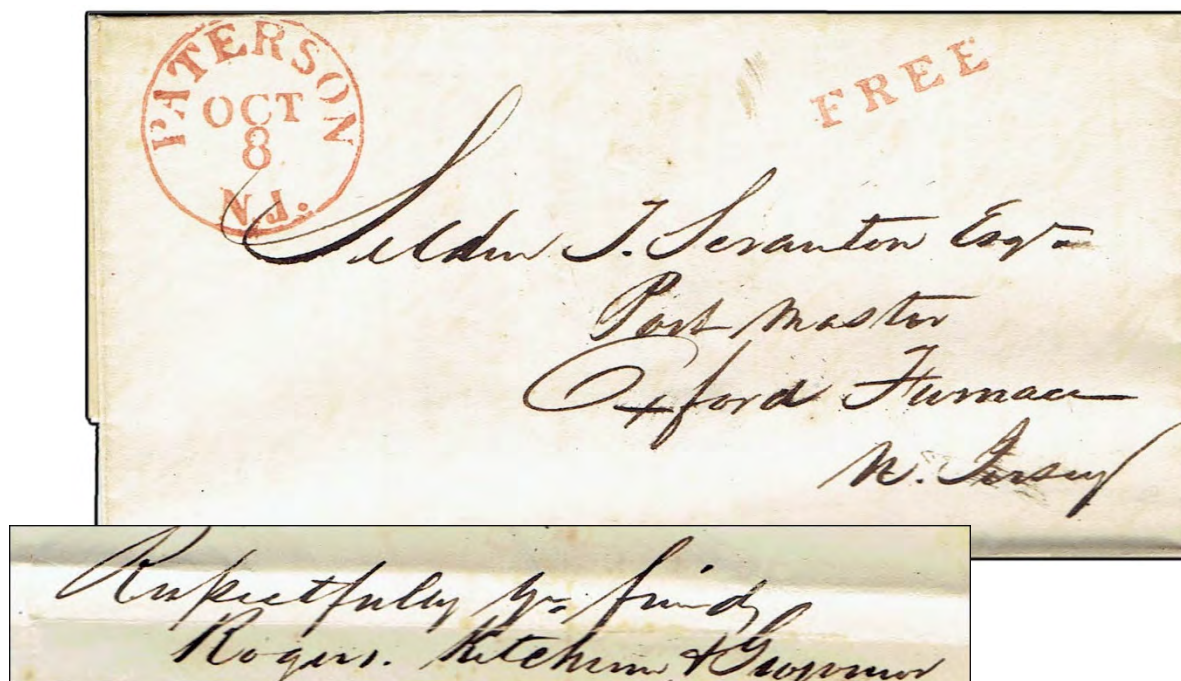 PATERSON
OCT
8
N.J.
FREE
Selden T. Scranton Esqr
Post Master
Oxford Furnace
N. Jersey
Respectfully Yr friends
Rogers, Ketchum & Grosvenor